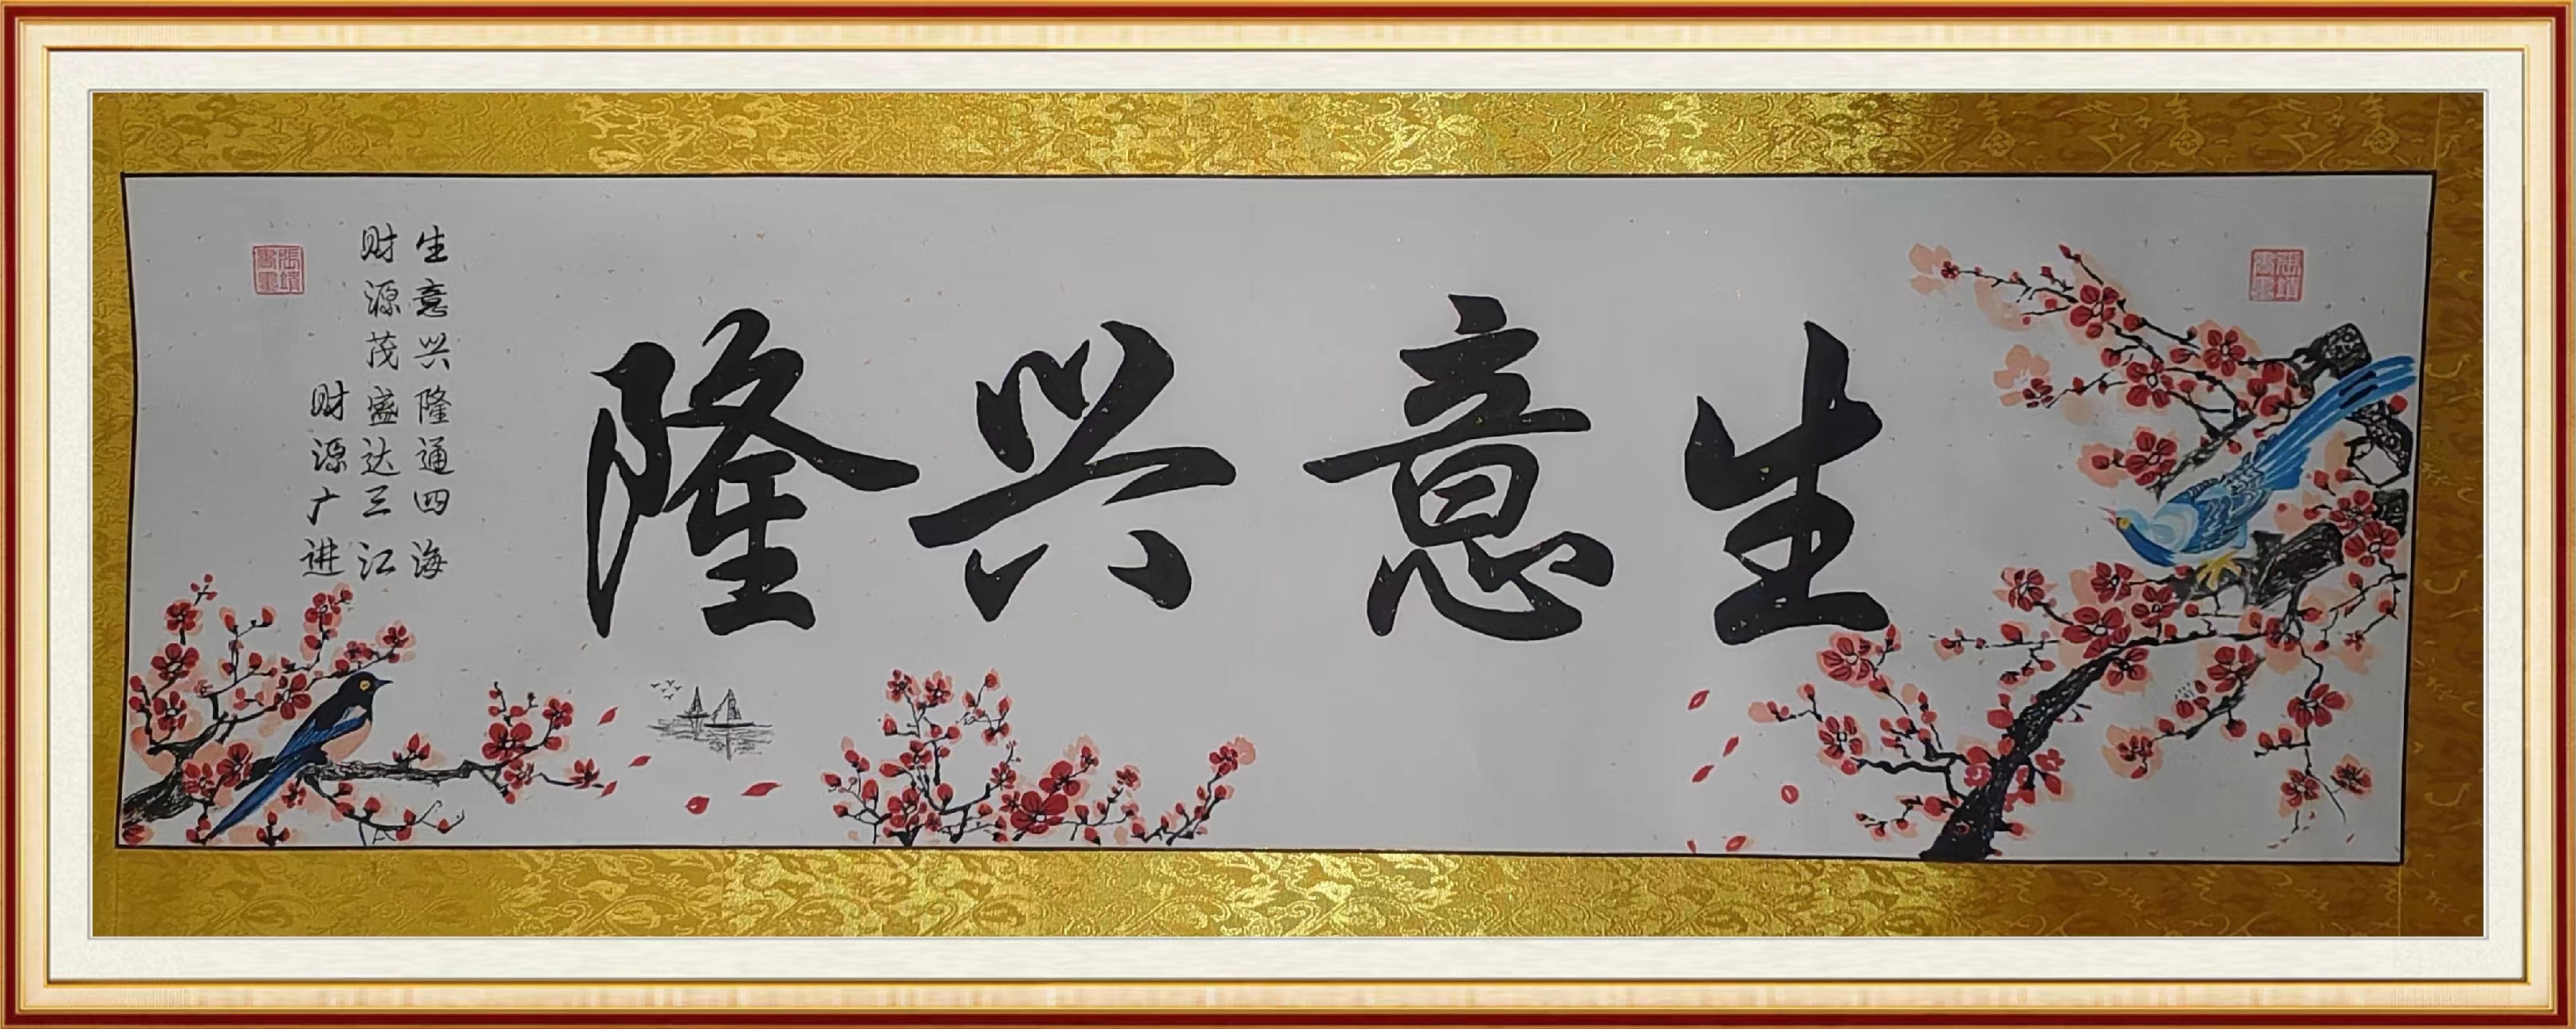 生意兴隆
生意兴隆通四海
财源茂盛达三江
财源广进